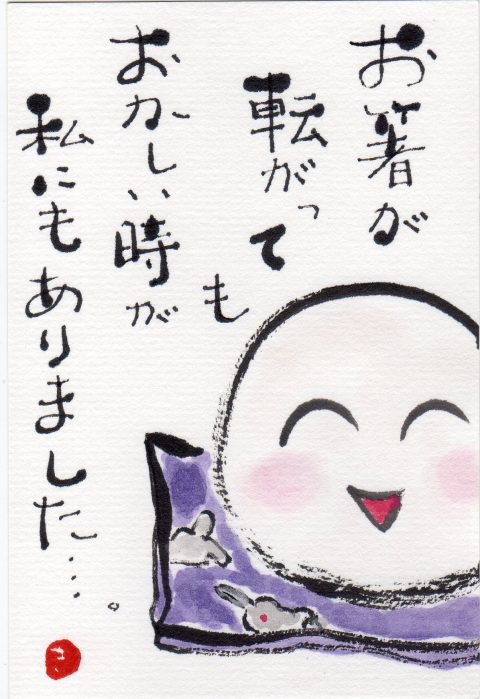 お箸が
転がっても
おかしい時が
私にもありました…。